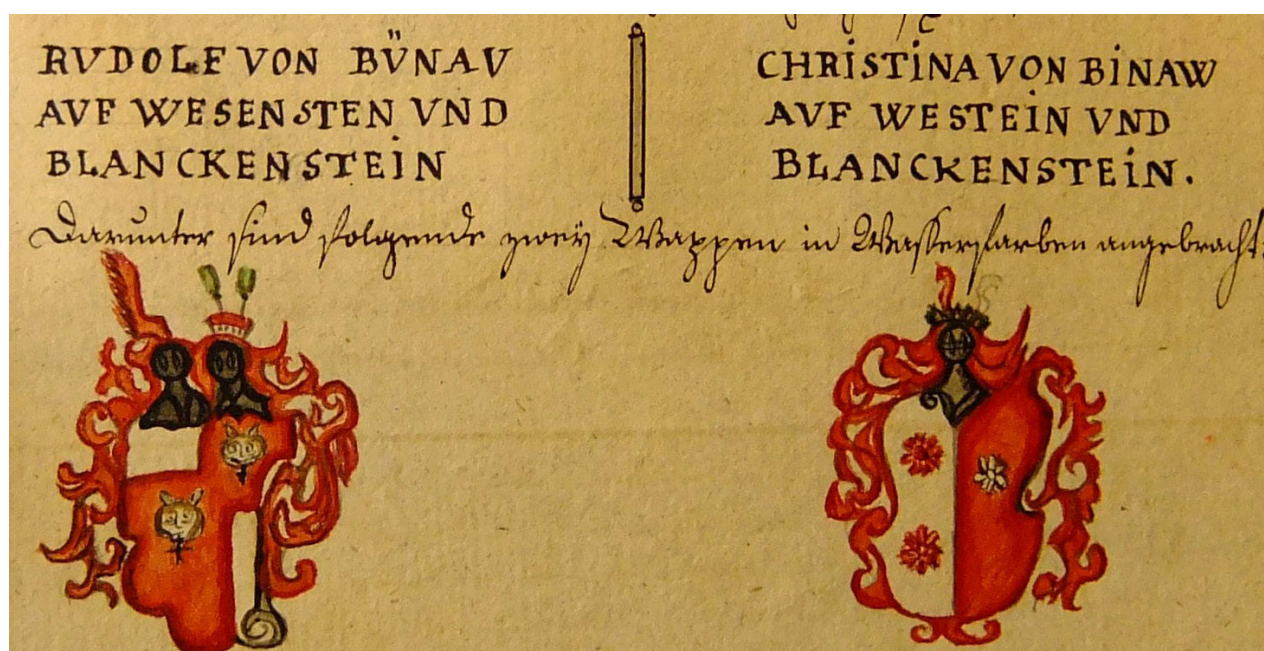 RVDOLF VON BÜNAV
AVF WESENSTEN VND
BLANCKENSTEIN
CHRISTINA VON BINAW
AVF WESTEIN VND
BLANCKENSTEIN.
Darunter sind folgende zwey Wappen in Wasserfarben angebracht: